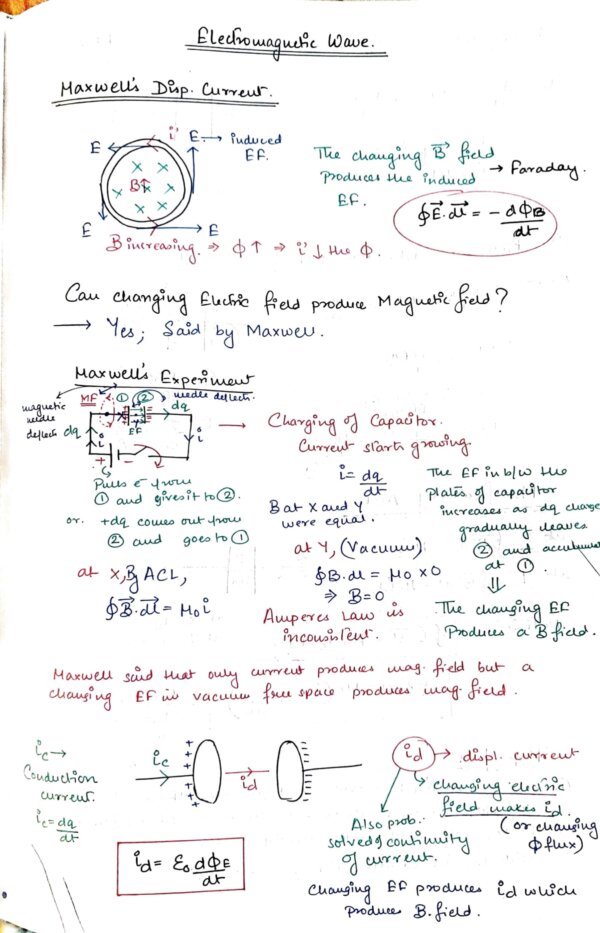 Electromagnetic Wave.
Maxwell's Disp. Current.
i'
E → induced
EF.
E
B↑
E
E
B increasing. ⇒ ϕ↑ ⇒ i' ↓ the ϕ.
The changing B⃗ field
produces the induced
EF.
→ Faraday.
∮E⃗.dl⃗ = - dϕB/dt
Can changing Electric field produce Magnetic field?
→ Yes; Said by Maxwell.
Maxwell's Experiment
magnetic
needle
deflects
MF
① ②
needle deflects.
dq
EF
dq
i
i
+ -
Pulls e⁻ from
① and gives it to ②.
or. +dq comes out from
② and goes to ①
at X, By ACL,
∮B⃗.dl⃗ = μ₀i
→ Charging of Capacitor.
Current starts growing.
i = dq/dt
B at X and Y
were equal.
at Y, (Vacuum)
∮B.dl = μ₀ × 0
⇒ B=0
Amperes Law is
inconsistent.
The EF in b/w the
plates of capacitor
increases as dq charge
gradually leaves
② and
at ①.
⇓
The changing EF
Produces a B field.
Maxwell said that only current produces mag. field but a
changing EF in vacuum free space produces mag. field.
ic →
Conduction
current.
ic = dq/dt
ic
id
id → displ. current
↳ changing electric
field makes id.
(or changing
ϕ flux)
Also prob.
solved of continuity
of current.
id = ε₀ dϕE/dt
Changing EF produces id which
produces B. field.